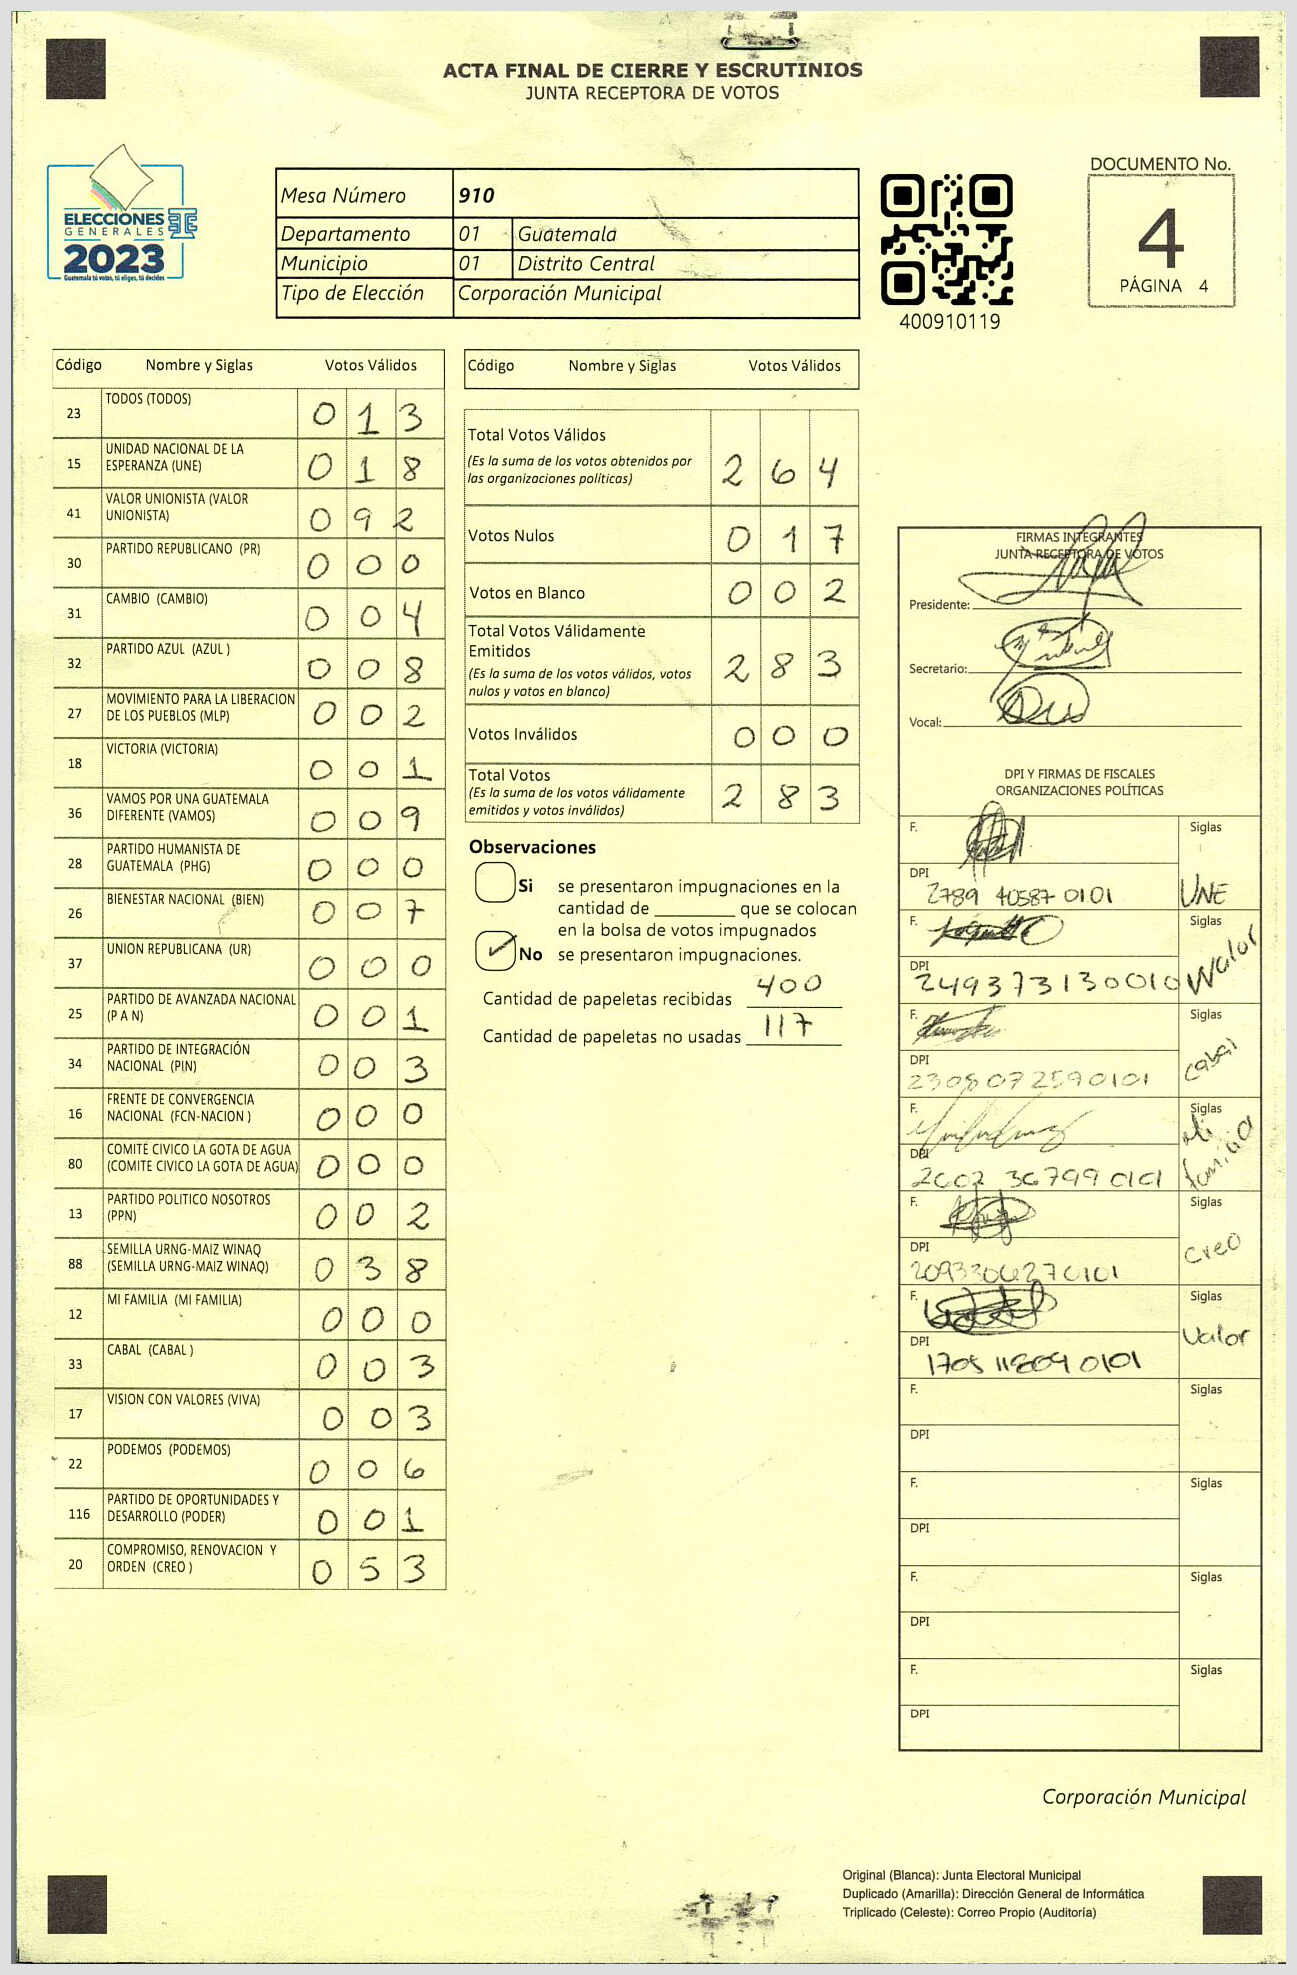 ACTA FINAL DE CIERRE Y ESCRUTINIOS
JUNTA RECEPTORA DE VOTOS
ELECCIONES
GENERALES
2023
Guatemala tú votas, tú eliges, tú decides
Mesa Número 910
Departamento 01 Guatemala
Municipio 01 Distrito Central
Tipo de Elección Corporación Municipal
400910119
DOCUMENTO No.
4
PÁGINA 4
Código Nombre y Siglas Votos Válidos
23 TODOS (TODOS) 0 1 3
15 UNIDAD NACIONAL DE LA ESPERANZA (UNE) 0 1 8
41 VALOR UNIONISTA (VALOR UNIONISTA) 0 9 2
30 PARTIDO REPUBLICANO (PR) 0 0 0
31 CAMBIO (CAMBIO) 0 0 4
32 PARTIDO AZUL (AZUL ) 0 0 8
27 MOVIMIENTO PARA LA LIBERACION DE LOS PUEBLOS (MLP) 0 0 2
18 VICTORIA (VICTORIA) 0 0 1
36 VAMOS POR UNA GUATEMALA DIFERENTE (VAMOS) 0 0 9
28 PARTIDO HUMANISTA DE GUATEMALA (PHG) 0 0 0
26 BIENESTAR NACIONAL (BIEN) 0 0 7
37 UNION REPUBLICANA (UR) 0 0 0
25 PARTIDO DE AVANZADA NACIONAL (P A N) 0 0 1
34 PARTIDO DE INTEGRACIÓN NACIONAL (PIN) 0 0 3
16 FRENTE DE CONVERGENCIA NACIONAL (FCN-NACION ) 0 0 0
80 COMITE CIVICO LA GOTA DE AGUA (COMITE CIVICO LA GOTA DE AGUA) 0 0 0
13 PARTIDO POLITICO NOSOTROS (PPN) 0 0 2
88 SEMILLA URNG-MAIZ WINAQ (SEMILLA URNG-MAIZ WINAQ) 0 3 8
12 MI FAMILIA (MI FAMILIA) 0 0 0
33 CABAL (CABAL ) 0 0 3
17 VISION CON VALORES (VIVA) 0 0 3
22 PODEMOS (PODEMOS) 0 0 6
116 PARTIDO DE OPORTUNIDADES Y DESARROLLO (PODER) 0 0 1
20 COMPROMISO, RENOVACION Y ORDEN (CREO ) 0 5 3
Código Nombre y Siglas Votos Válidos
Total Votos Válidos
(Es la suma de los votos obtenidos por
las organizaciones políticas) 2 6 4
Votos Nulos 0 1 7
Votos en Blanco 0 0 2
Total Votos Válidamente
Emitidos
(Es la suma de los votos válidos, votos
nulos y votos en blanco) 2 8 3
Votos Inválidos 0 0 0
Total Votos
(Es la suma de los votos válidamente
emitidos y votos inválidos) 2 8 3
Observaciones
Si se presentaron impugnaciones en la
cantidad de ________ que se colocan
en la bolsa de votos impugnados
No se presentaron impugnaciones.
Cantidad de papeletas recibidas 400
Cantidad de papeletas no usadas 117
FIRMAS INTEGRANTES
JUNTA RECEPTORA DE VOTOS
Presidente:
Secretario:
Vocal:
DPI Y FIRMAS DE FISCALES
ORGANIZACIONES POLÍTICAS
F. Siglas
DPI 2789 40587 0101 UNE
F. Siglas
DPI 249373130010 Valor
F. Siglas
DPI 2308072590101 cabal
F. Siglas
DPI 2602 36799 0101 Mi familia
F. Siglas
DPI 2093306270101 Creo
F. Siglas
DPI Valor
F. Siglas
DPI
F. Siglas
DPI
F. Siglas
DPI
F. Siglas
DPI
Corporación Municipal
Original (Blanca): Junta Electoral Municipal
Duplicado (Amarilla): Dirección General de Informática
Triplicado (Celeste): Correo Propio (Auditoría)